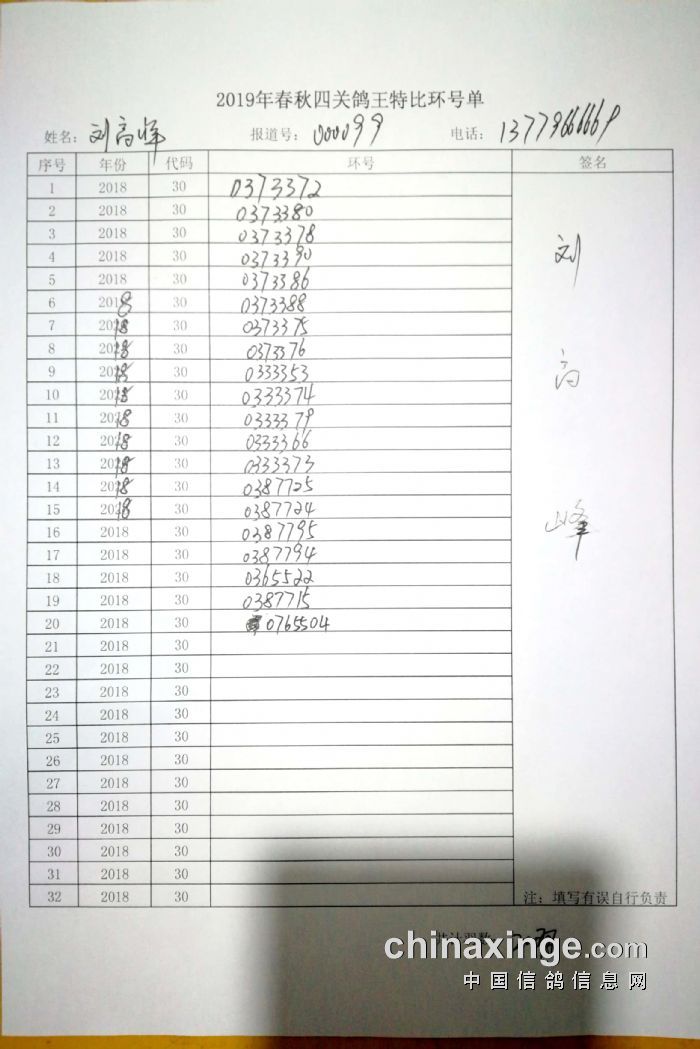 2019年春秋四关鸽王特比环号单
姓名: 刘高峰 报道号: 000099 电话: 13779666669
序号 年份 代码 环号 签名
1 2018 30 0373372
2 2018 30 0373380
3 2018 30 0373378
4 2018 30 0373390
5 2018 30 0373386
6 2018 30 0373388
7 2018 30 0373375
8 2018 30 0373376
9 2018 30 0333353
10 2018 30 0333374
11 2018 30 0333379
12 2018 30 0333366
13 2018 30 0333373
14 2018 30 0387725
15 2018 30 0387724
16 2018 30 0387795
17 2018 30 0387794
18 2018 30 0365522
19 2018 30 0387715
20 2018 30 0765504
21 2018 30
22 2018 30
23 2018 30
24 2018 30
25 2018 30
26 2018 30
27 2018 30
28 2018 30
29 2018 30
30 2018 30
31 2018 30
32 2018 30
刘
高
峰
注: 填写有误自行负责
chinaxinge.com
中国信鸽信息网